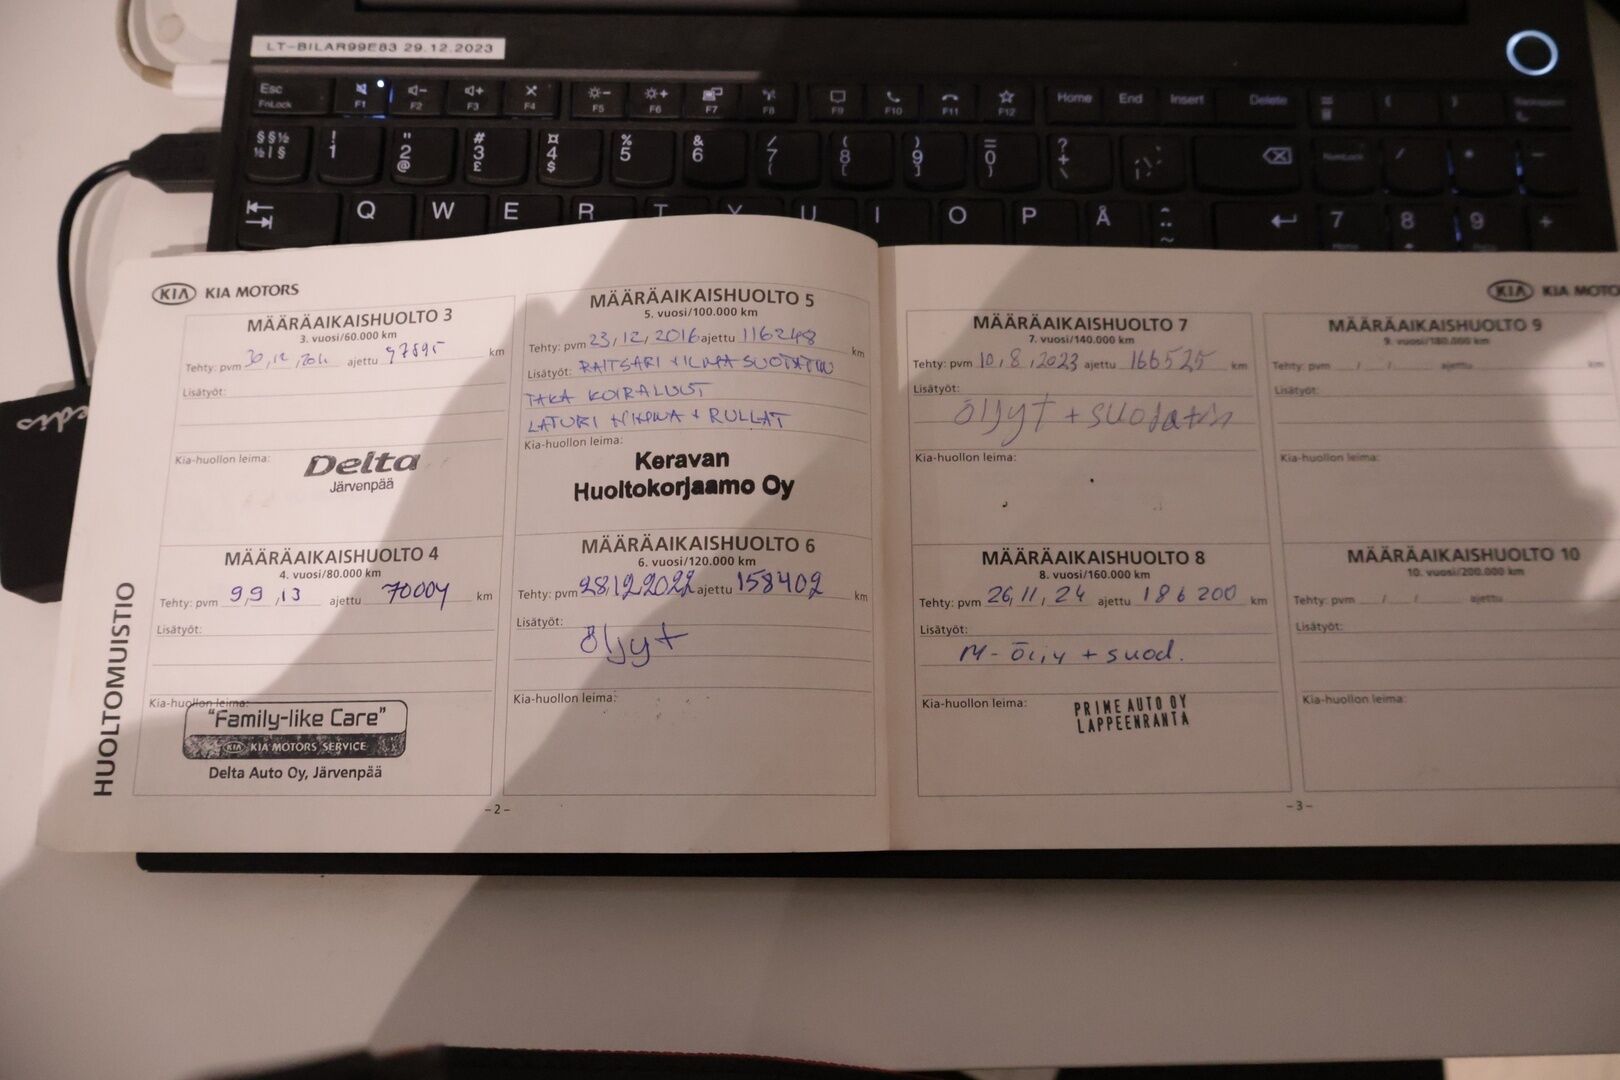 LT-BILAR99E83 29.12.2023
Esc
FnLock
F1 F2 F3 F4 F5 F6 F7 F8 F9 F10 F11 F12
Home End Insert Delete
§ § ½ ½ | §
! 1 " 2 @ # 3 £ ¤ 4 $ % 5 & 6 / 7 { ( 8 [ ) 9 ] = 0 } ? + \
NumLock / * -
Q W E R T Y U I O P Å
7 8 9 +
Home
KIA KIA MOTORS
HUOLTOMUISTIO
MÄÄRÄAIKAISHUOLTO 3
3. vuosi/60.000 km
Tehty: pvm 30, 12, ajettu km
Lisätyöt:
Kia-huollon leima:
Delta
Järvenpää
MÄÄRÄAIKAISHUOLTO 4
4. vuosi/80.000 km
Tehty: pvm 9,9,13 ajettu 70004 km
Lisätyöt:
Kia-huollon leima:
"Family-like Care"
KIA KIA MOTORS SERVICE
Delta Auto Oy, Järvenpää
MÄÄRÄAIKAISHUOLTO 5
5. vuosi/100.000 km
Tehty: pvm 23, 12, 2016 ajettu 116248 km
Lisätyöt: RAITSARI + ILMA SUODATIN
TAKA KOIRALUUT
LATURI HIHNA + RULLAT
Kia-huollon leima:
Keravan
Huoltokorjaamo Oy
MÄÄRÄAIKAISHUOLTO 6
6. vuosi/120.000 km
Tehty: pvm 28,12,2022 ajettu 158402 km
Lisätyöt:
öljyt
Kia-huollon leima:
- 2 -
KIA KIA MOTO
MÄÄRÄAIKAISHUOLTO 7
7. vuosi/140.000 km
Tehty: pvm 10, 8, 2023 ajettu 166525 km
Lisätyöt:
öljyt + suodatin
Kia-huollon leima:
MÄÄRÄAIKAISHUOLTO 8
8. vuosi/160.000 km
Tehty: pvm 26, 11, 24 ajettu 186 200 km
Lisätyöt:
M-öljy + suod.
Kia-huollon leima:
PRIME AUTO OY
LAPPEENRANTA
MÄÄRÄAIKAISHUOLTO 9
9. vuosi/180.000 km
Tehty: pvm / / ajettu km
Lisätyöt:
Kia-huollon leima:
MÄÄRÄAIKAISHUOLTO 10
10. vuosi/200.000 km
Tehty: pvm / / ajettu
Lisätyöt:
Kia-huollon leima:
- 3 -